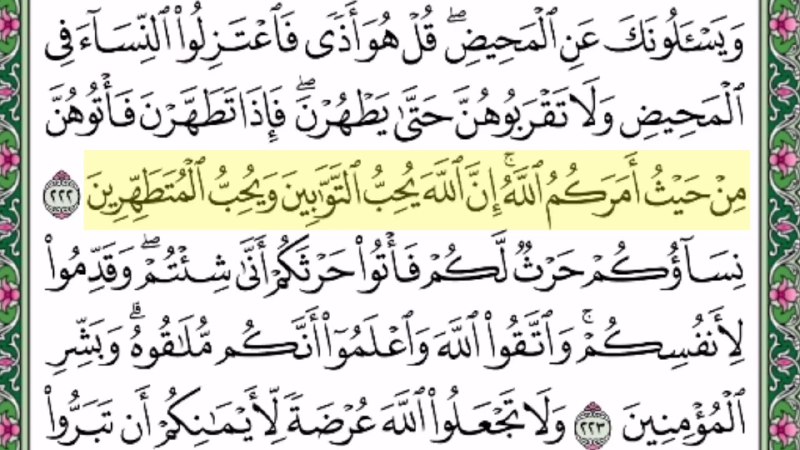 وَيَسْـَٔلُونَكَ عَنِ ٱلْمَحِيضِ ۖ قُلْ هُوَ أَذًى فَٱعْتَزِلُوا۟ ٱلنِّسَآءَ فِى
ٱلْمَحِيضِ وَلَا تَقْرَبُوهُنَّ حَتَّىٰ يَطْهُرْنَ ۖ فَإِذَا تَطَهَّرْنَ فَأْتُوهُنَّ
مِنْ حَيْثُ أَمَرَكُمُ ٱللَّهُ ۚ إِنَّ ٱللَّهَ يُحِبُّ ٱلتَّوَّٰبِينَ وَيُحِبُّ ٱلْمُتَطَهِّرِينَ ٢٢٢
نِسَآؤُكُمْ حَرْثٌ لَّكُمْ فَأْتُوا۟ حَرْثَكُمْ أَنَّىٰ شِئْتُمْ ۖ وَقَدِّمُوا۟
لِأَنفُسِكُمْ ۚ وَٱتَّقُوا۟ ٱللَّهَ وَٱعْلَمُوٓا۟ أَنَّكُم مُّلَـٰقُوهُ ۗ وَبَشِّرِ
ٱلْمُؤْمِنِينَ ٢٢٣ وَلَا تَجْعَلُوا۟ ٱللَّهَ عُرْضَةً لِّأَيْمَـٰنِكُمْ أَن تَبَرُّوا۟